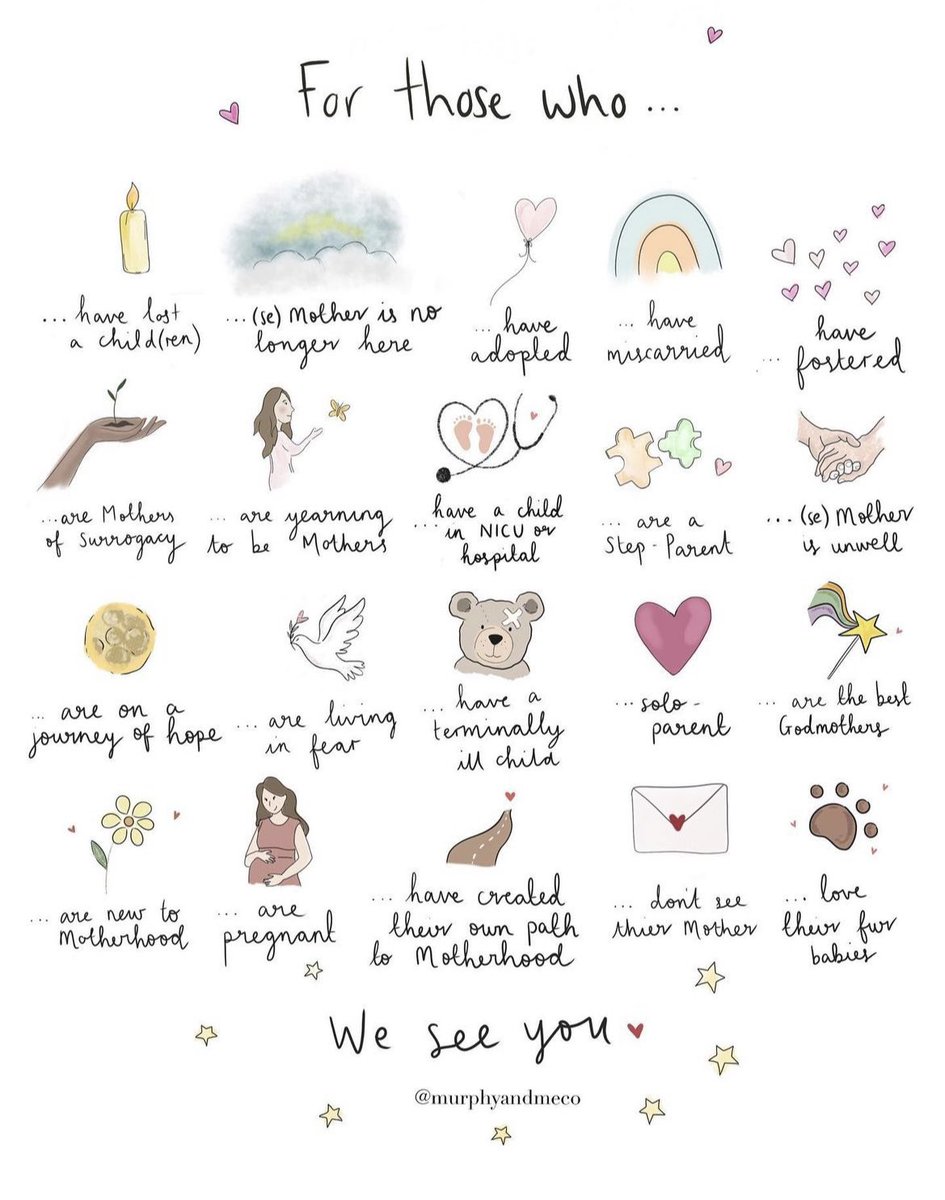 For those who ...
... have lost
a child(ren)
... (se) Mother is no
longer here
... have
adopted
... have
miscarried
have
... fostered
...are Mothers
of Surrogacy
... are yearning
to be Mothers
have a child
... in NICU or
hospital
... are a
Step-Parent
... (se) Mother
is unwell
... are on a
journey of hope
... are living
in fear
... have a
terminally
ill child
... solo-
parent
... are the best
Godmothers
... are new to
Motherhood
... are
pregnant
... have created
their own path
to Motherhood
... don't see
thier Mother
... love
their fur
babies
We see you
@murphyandmeco